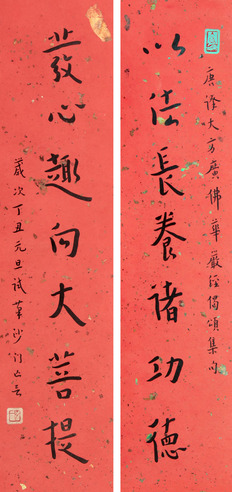 唐译大方廣佛華嚴經偈頌集句
以法長養諸功德
發心趣向大菩提
歲次丁丑元旦試筆沙門亡言